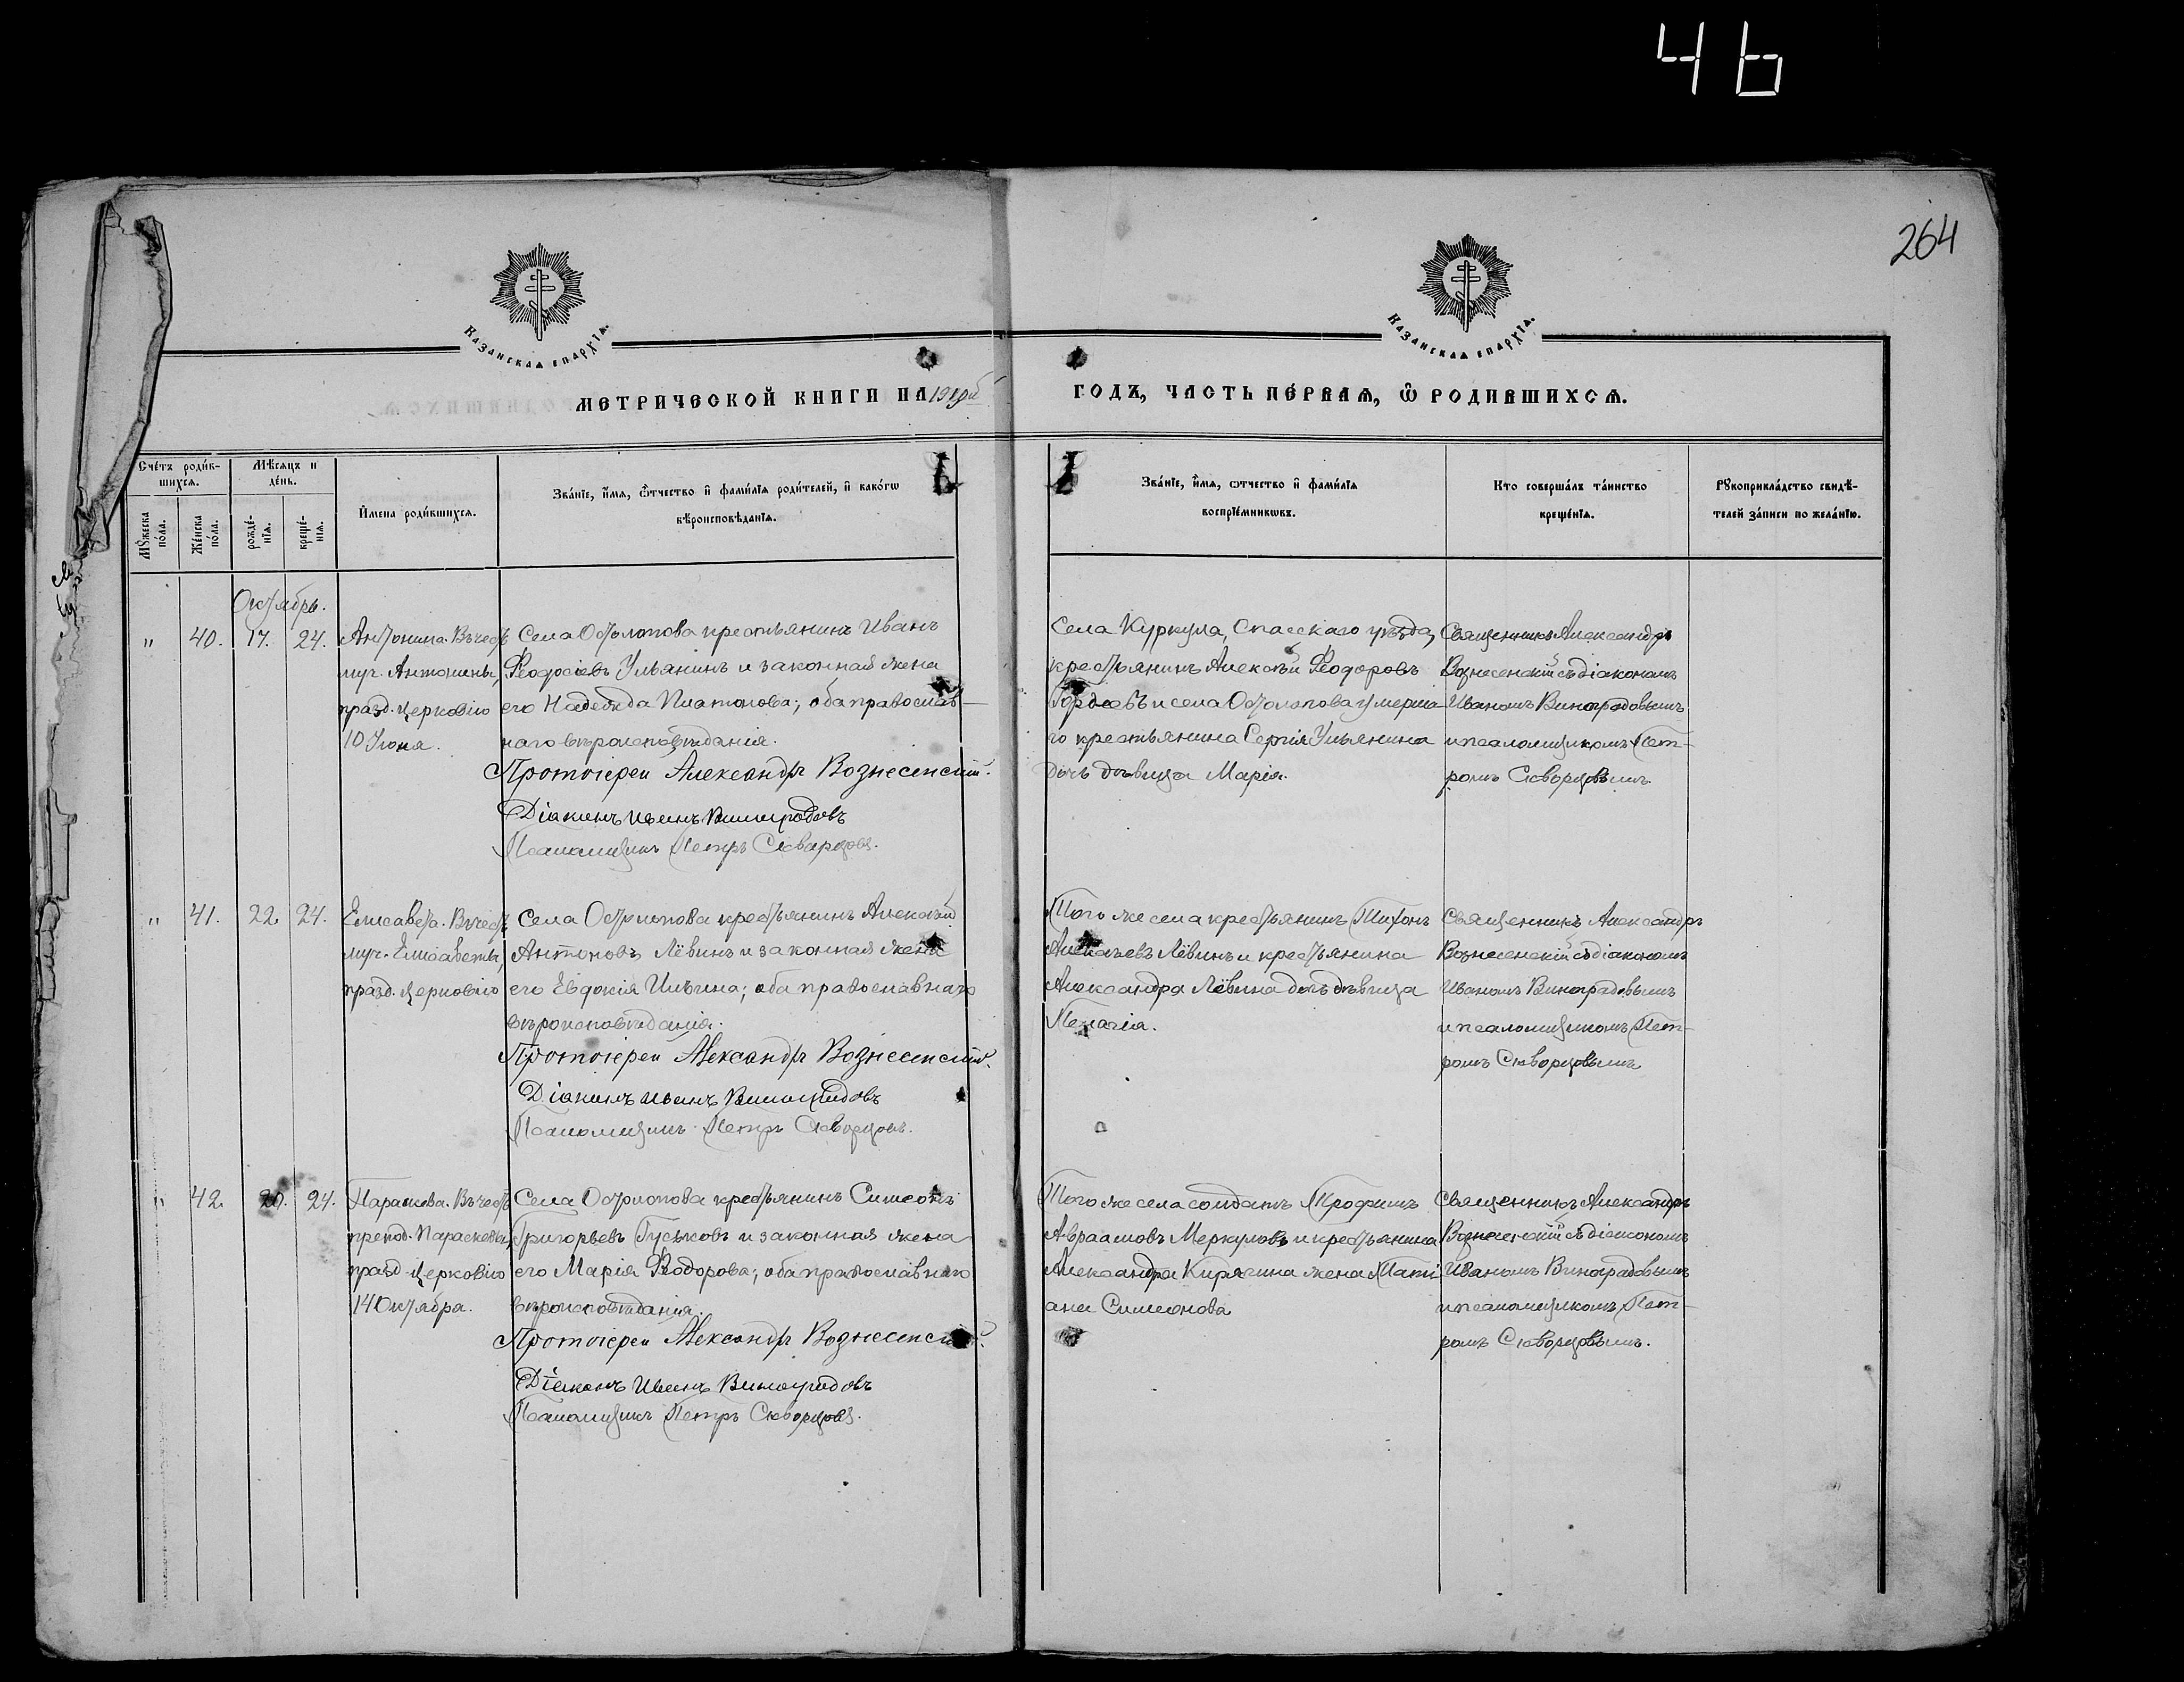 46
264
Казанская епархїа.
Казанская епархїа.
МЕТРИЧЕСКОЙ КНИГИ НА 1919й ГОДЪ, ЧАСТЬ ПЕРВАЯ, Ѡ РОДИВШИХСЯ.
Счетъ родившихся.
Мужеска пола.
Женска пола.
Мѣсяцъ и день.
рожденїя.
крещенїя.
Имена родившихся.
Званїе, имя, ѿчество и фамилїя родителей, и какогѡ
вѣроисповѣданїя.
Званїе, имя, ѿчество и фамилїя
воспрїемниковъ.
Кто совершалъ таинство
крещенїя.
Рꙋкоприкладство свидѣ-
телей записи по желанїю.
Октябрь.
" 40. 17. 24.
Антонина. Въ честь
муч. Антонины,
празд. церковію
10 Іюня.
Села Остолопова крестьянинъ Иванъ
Ѳеодосіевъ Ульянинъ и законная жена
его Надежда Платонова; оба православ-
наго вѣроисповѣданія.
Протоіерей Александръ Вознесенскій.
Діаконъ Иванъ Виноградовъ
Псаломщикъ Петръ Скворцовъ.
Села Куркула, Спасскаго уѣзда,
крестьянинъ Алексѣй Ѳеодоровъ
Гордѣевъ и села Остолопова умерша-
го крестьянина Сергія Ульянина
дочь дѣвица Марія.
Священникъ Александръ
Вознесенскій съ діакономъ
Иваномъ Виноградовымъ
и псаломщикомъ Пет-
ромъ Скворцовымъ.
" 41. 22. 24.
Елисавета. Въ честь
муч. Елисаветы,
празд. церковію
Села Остолопова крестьянинъ Алексѣй
Антоновъ Лёвинъ и законная жена
его Евдокія Ильина; оба православнаго
вѣроисповѣданія.
Протоіерей Александръ Вознесенскій.
Діаконъ Иванъ Виноградовъ
Псаломщикъ Петръ Скворцовъ.
Того же села крестьянинъ Тихонъ
Алексѣевъ Лёвинъ и крестьянина
Александра Лёвина дочь дѣвица
Пелагія.
Священникъ Александръ
Вознесенскій съ діакономъ
Иваномъ Виноградовымъ
и псаломщикомъ Пет-
ромъ Скворцовымъ
" 42. 20. 24.
Параскева. Въ честь
препод. Параскевы,
празд. церковію
14 Октября.
Села Остолопова крестьянинъ Симеонъ
Григорьевъ Гуськовъ и законная жена
его Марія Ѳеодорова; оба православнаго
вѣроисповѣданія.
Протоіерей Александръ Вознесенскій.
Діаконъ Иванъ Виноградовъ
Псаломщикъ Петръ Скворцовъ.
Того же села солдатъ Трофимъ
Авраамовъ Меркуловъ и крестьянина
Александра Кирягина жена Тати-
ана Симеонова
Священникъ Александръ
Вознесенскій съ діакономъ
Иваномъ Виноградовымъ
и псаломщикомъ Пет-
ромъ Скворцовымъ.